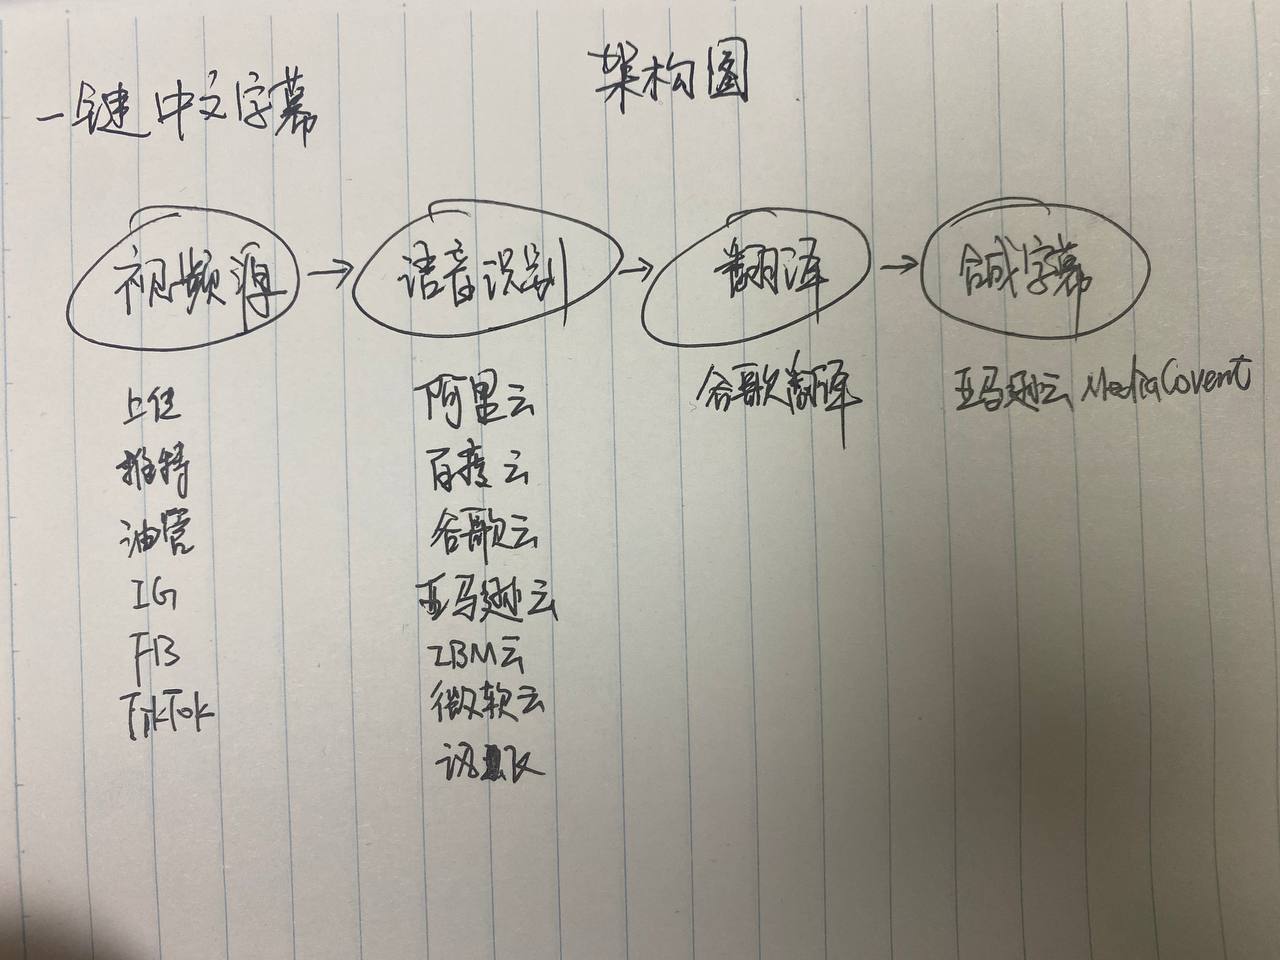 一键中文字幕
架构图
视频源 → 语音识别 → 翻译 → 合成字幕
上传
推特
油管
IG
FB
TikTok
阿里云
百度云
谷歌云
亚马逊云
IBM云
微软云
讯飞
谷歌翻译
亚马逊云 MediaCovent